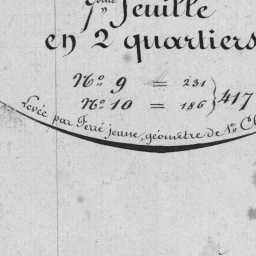 1ère feuille
en 2 quartiers
No. 9 = 231
No. 10 = 186 } 417
Levée par Ferré jeune, géomètre de